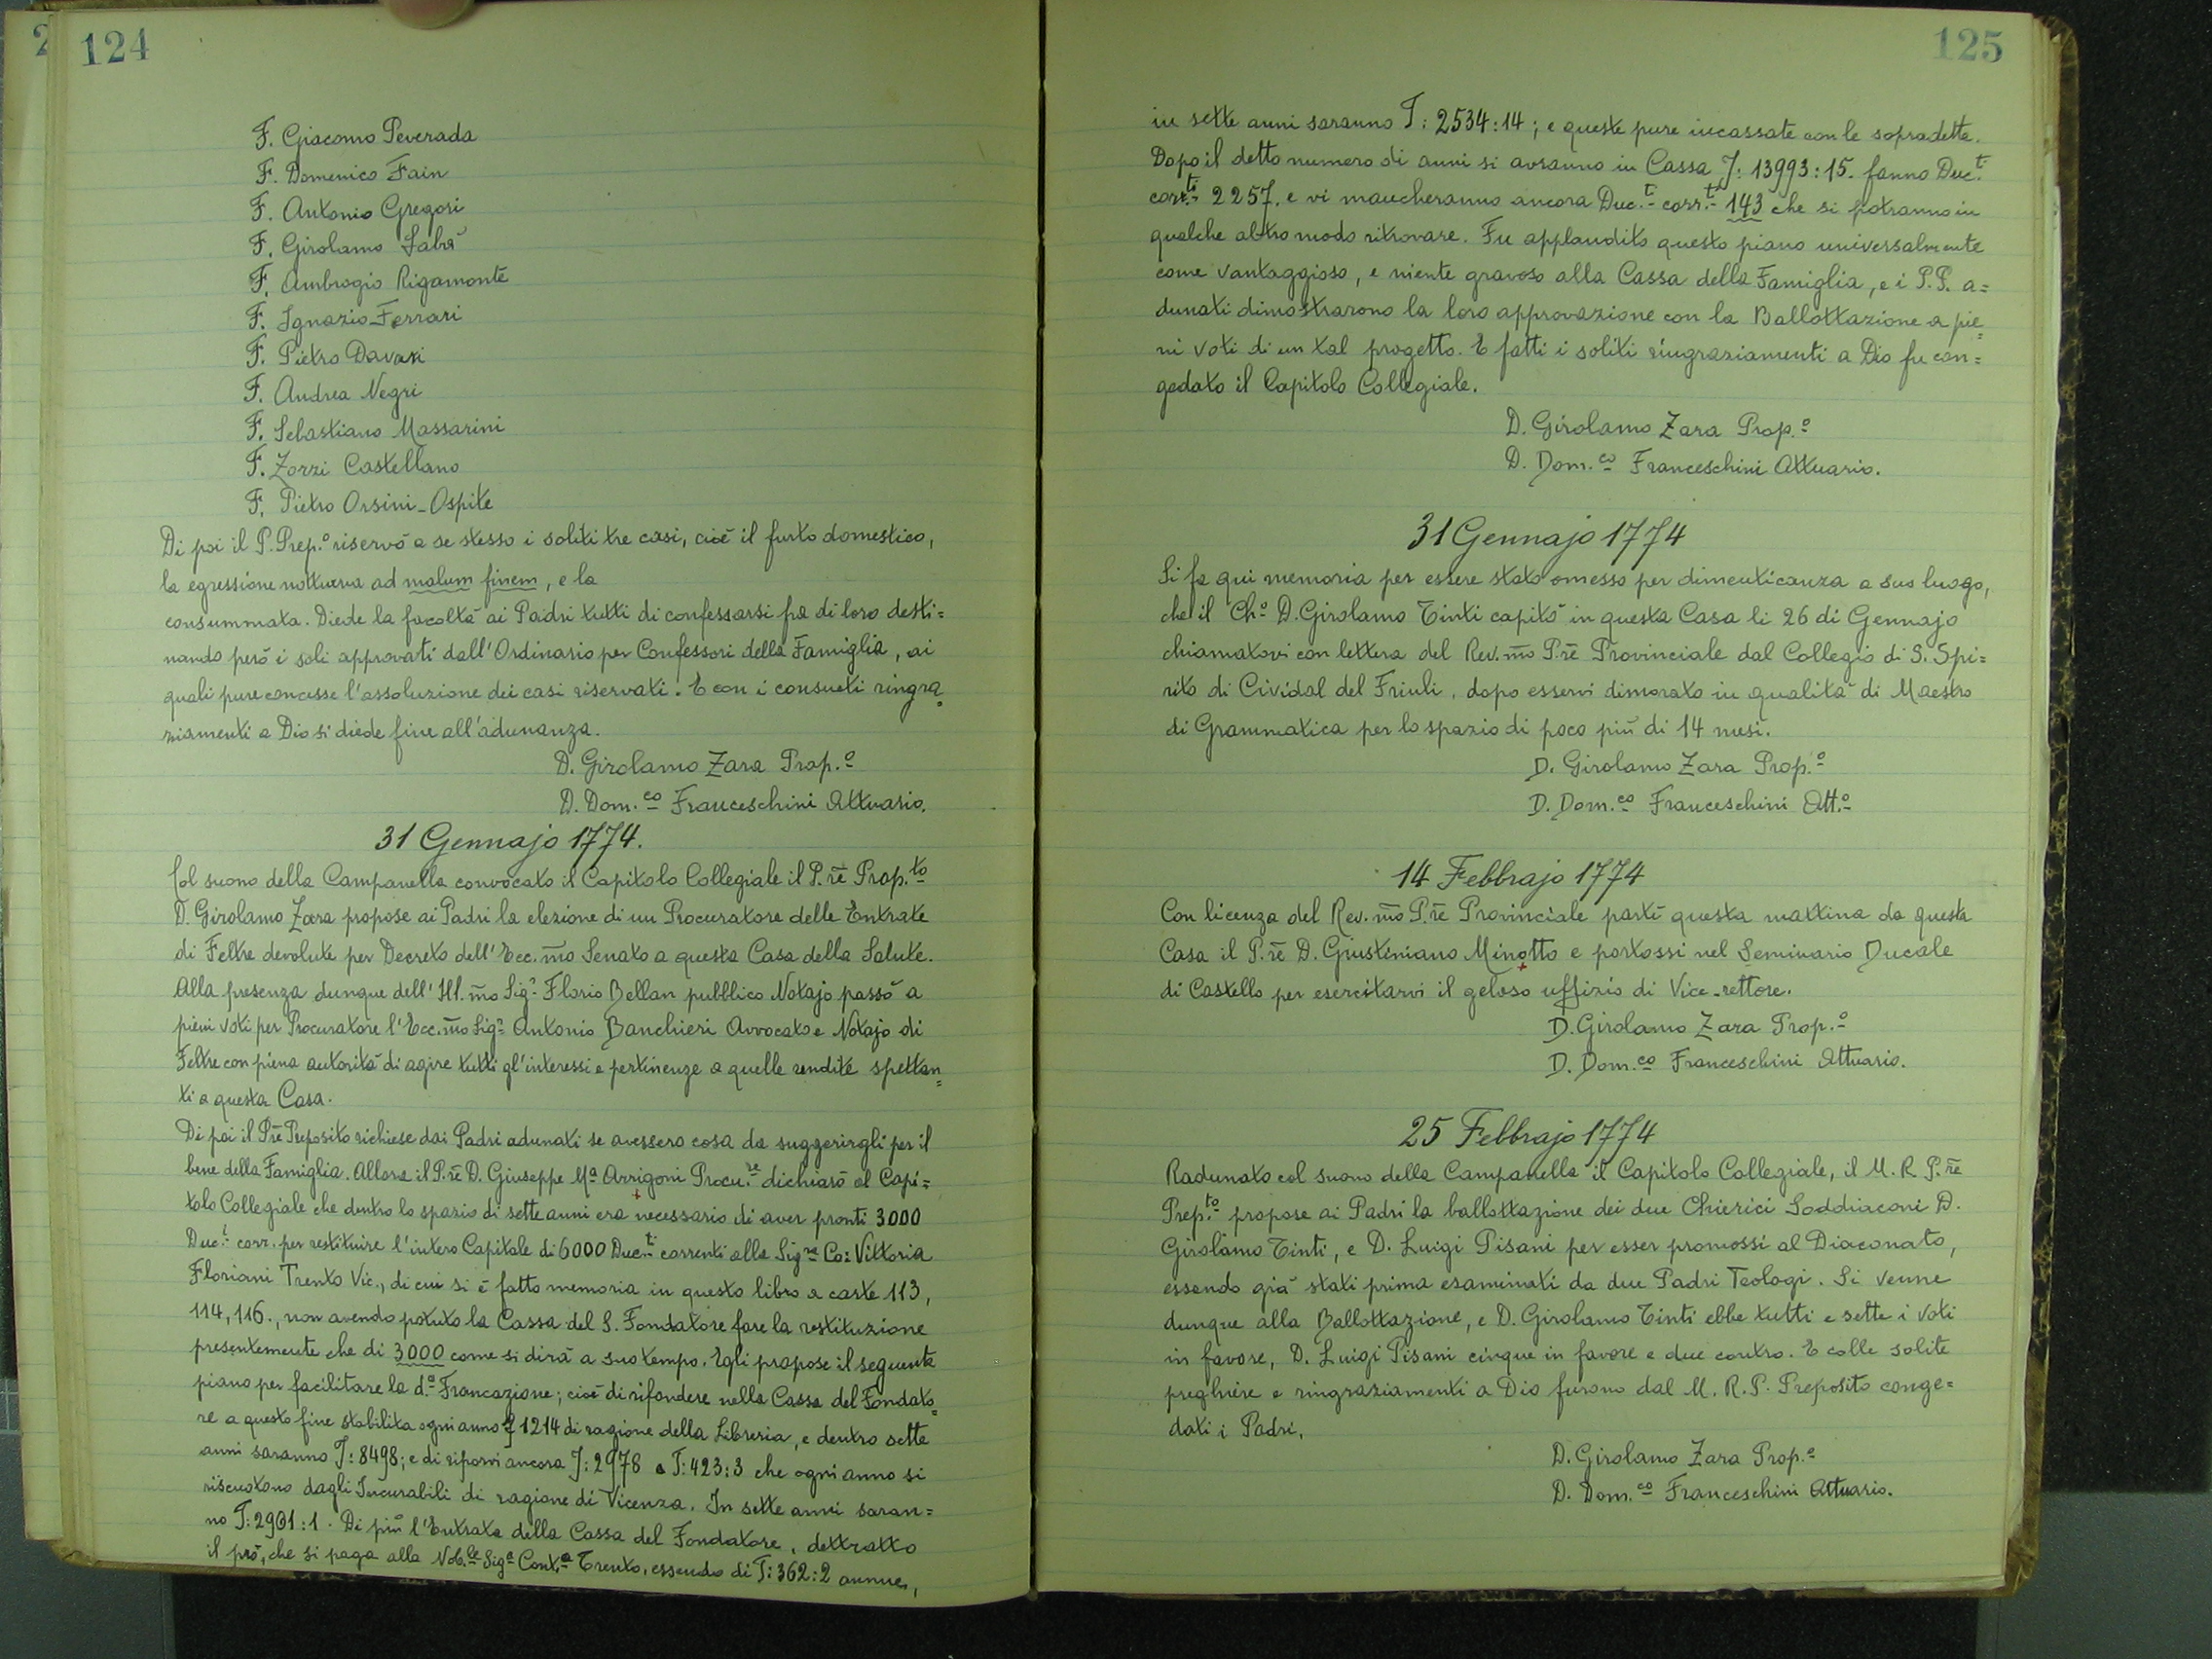 124
F. Giacomo Peverada
F. Domenico Fain
F. Antonio Gregori
F. Girolamo Labrà
F. Ambrogio Rigamonte
F. Ignazio Ferrari
F. Pietro Davari
F. Andrea Negri
F. Sebastiano Massarini
F. Zorzi Castellano
F. Pietro Orsini_Ospite
Di poi il P. Prep.º riservò a se stesso i soliti tre casi, cioè il furto domestico,
la egressione notturna ad malum finem, e la
consummata. Diede la facoltà ai Padri tutti di confessarsi fra di loro desti=
nando però i soli approvati dall'Ordinario per Confessori della Famiglia, ai
quali pure concesse l'assoluzione dei casi riservati. E con i consueti ringra=
ziamenti a Dio si diede fine all'adunanza.
D. Girolamo Zara Prop.º
D. Dom.co Franceschini Attuario.
31 Gennajo 1774.
Col suono della Campanella convocato il Capitolo Collegiale il P.re Prop.to
D. Girolamo Zara propose ai Padri la elezione di un Procuratore delle Entrate
di Feltre devolute per Decreto dell'Ecc.mo Senato a questa Casa della Salute.
Alla presenza dunque dell'Ill.mo Sig.r Florio Bellan pubblico Notajo passò a
pieni voti per Procuratore l'Ecc.mo Sig.r Antonio Banchieri Avvocato e Notajo di
Feltre con piena autorità di agire tutti gl'interessi e pertinenze a quelle rendite spettan=
ti a questa Casa.
Di poi il Pre Preposito richiese dai Padri adunati se avessero cosa da suggerirgli per il
bene della Famiglia. Allora il P.re D. Giuseppe Ma Arrigoni Procu.re dichiarò al Capi=
tolo Collegiale che dentro lo spazio di sette anni era necessario di aver pronti 3000
Duc.ti corr. per restituire l'intero Capitale di 6000 Duc.ti correnti alla Sig.ra Co: Vittoria
Floriani Trento Vic., di cui si è fatto memoria in questo libro a carte 113,
114, 116., non avendo potuto la Cassa del S. Fondatore fare la restituzione
presentemente che di 3000 come si dirà a suo tempo. Egli propose il seguente
piano per facilitare la d.a Francazione; cioè di rifondere nella Cassa del Fondato=
re a questo fine stabilita ogni anno £ 1214 di ragione della Libreria, e dentro sette
anni saranno T: 8498; e di riporvi ancora T: 2978 a T: 423:3 che ogni anno si
riscuotono dagli Incurabili di ragione di Vicenza. In sette anni saran=
no T: 2961:1. Di più l'Entrata della Cassa del Fondatore, dettratto
il prò, che si paga alla Nob.le Sig.a Cont.a Trento, essendo di T: 362:2 annue,
125
in sette anni saranno T: 2534:14; e queste pure incassate con le sopradette.
Dopo il detto numero di anni si avranno in Cassa T: 13993:15. fanno Duc.ti
corr.ti 2257. e vi mancheranno ancora Duc.ti corr.ti 143 che si potranno in
qualche altro modo ritrovare. Fu applaudito questo piano universalmente
come vantaggioso, e niente gravoso alla Cassa della Famiglia, e i P.P. a=
dunati dimostrarono la loro approvazione con la Ballottazione a pie=
ni voti di un tal progetto. E fatti i soliti ringraziamenti a Dio fu con=
gedato il Capitolo Collegiale.
D. Girolamo Zara Prop.º
D. Dom.co Franceschini Attuario.
31 Gennajo 1774
Si fa qui memoria per essere stato omesso per dimenticanza a suo luogo,
che il Ch.º D. Girolamo Tinti capitò in questa Casa li 26 di Gennajo
chiamatovi con lettera del Rev.mo P.re Provinciale dal Collegio di S. Spi=
rito di Cividal del Friuli, dopo esservi dimorato in qualità di Maestro
di Grammatica per lo spazio di poco più di 14 mesi.
D. Girolamo Zara Prop.º
D. Dom.co Franceschini Att.º
14 Febbrajo 1774
Con licenza del Rev.mo P.re Provinciale partì questa mattina da questa
Casa il P.re D. Giustiniano Minotto e portossi nel Seminario Ducale
di Castello per esercitarvi il geloso uffizio di Vice-rettore.
D. Girolamo Zara Prop.º
D. Dom.co Franceschini Attuario.
25 Febbrajo 1774
Radunato col suono della Campanella il Capitolo Collegiale, il M. R. P.re
Prep.to propose ai Padri la ballottazione dei due Chierici Soddiaconi D.
Girolamo Tinti, e D. Luigi Pisani per esser promossi al Diaconato,
essendo già stati prima esaminati da due Padri Teologi. Si venne
dunque alla Ballottazione, e D. Girolamo Tinti ebbe tutti e sette i voti
in favore, D. Luigi Pisani cinque in favore e due contro. E colle solite
preghiere e ringraziamenti a Dio furono dal M. R. P. Preposito conge=
dati i Padri,
D. Girolamo Zara Prop.º
D. Dom.co Franceschini Attuario.